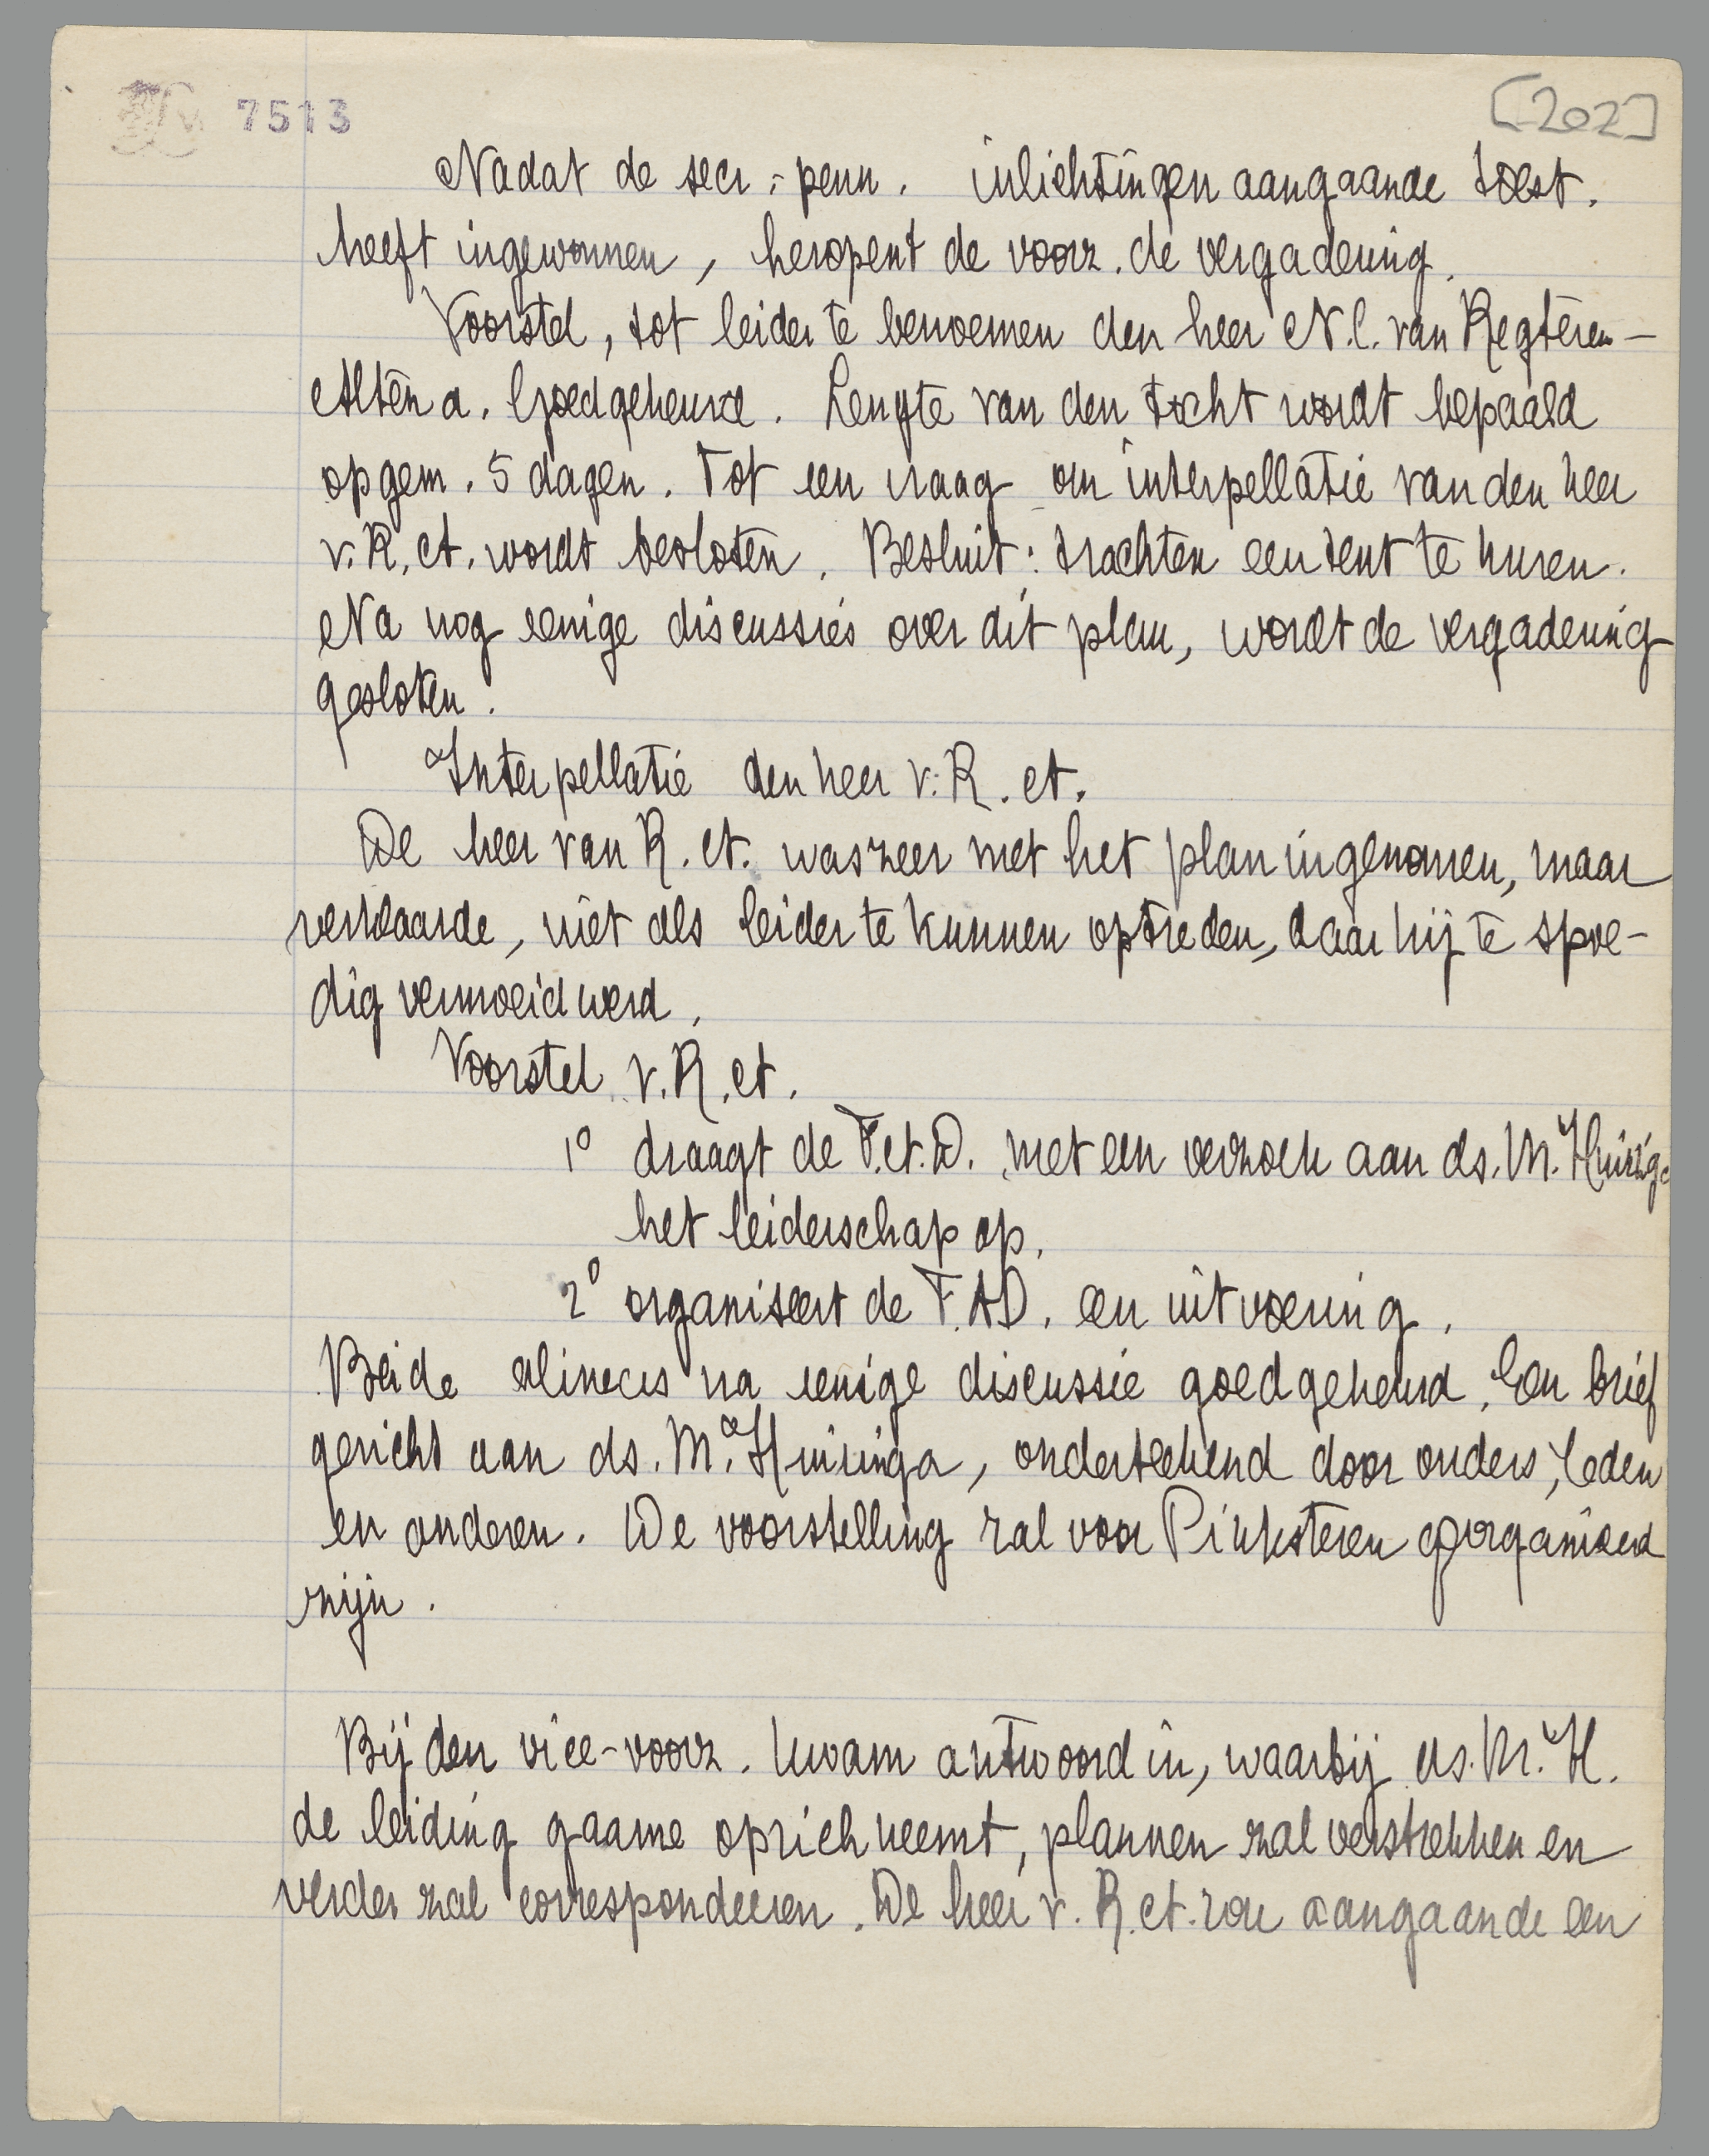 7513
[202]
Nadat de secr.-penn. inlichtingen aangaande toest.
heeft ingewonnen, heropent de voorz. de vergadering.
Voorstel, tot leider te benoemen den heer N.C. van Regteren-
Altena. Goedgekeurd. Lengte van den tocht wordt bepaald
op gem. 5 dagen. Tot een vraag om interpellatie van den heer
v. R. A. wordt besloten. Besluit: trachten een tent te huren.
Na nog eenige discussies over dit plan, wordt de vergadering
gesloten.
Interpellatie den heer v. R. A.
De heer van R. A. was zeer met het plan ingenomen, maar
verklaarde, niet als leider te kunnen optreden, daar hij te spoe-
dig vermoeid werd.
Voorstel v. R. A.
1o draagt de T.A.D. met een verzoek aan ds. M. Huizinga
het leiderschap op.
2o organiseert de T.A.D. een uitvoering.
Beide alineas na eenige discussie goedgekeurd. Een brief
gericht aan ds. M. Huizinga, onderteekend door onders, leden
en anderen. De voorstelling zal voor Pinksteren georganiseerd
zijn.
Bij den vice-voorz. kwam antwoord in, waarbij ds. M. H.
de leiding gaarne op zich neemt, plannen zal verstrekken en
verder zal correspondeeren. De heer v. R. A. zou aangaande een